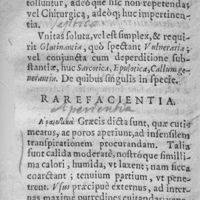 tolluntur, adeoq; hic non repetendas;
vel Chirurgica, adeoq; huc impertinen-
tia.
Unitas soluta, vel est simplex, & requi-
rit Glutinantia, quò spectant Vulneraria;
vel conjuncta cum deperditione substan-
tiæ, huc Sarcotica, Epulotica, Callum ge-
nerantia. De quibus singulis in specie.
RAREFACIENTIA.
Græcis dicta sunt, quæ cutis
meatus, ac poros aperiunt, ad insensilem
transpirationem procurandam. Talia
sunt calida moderatè, nostróque simillima
calori, humida, vt laxent; nam si
coarctant; tenuium partium, vt pene-
trent. Usus præcipuè externus, ad inter-